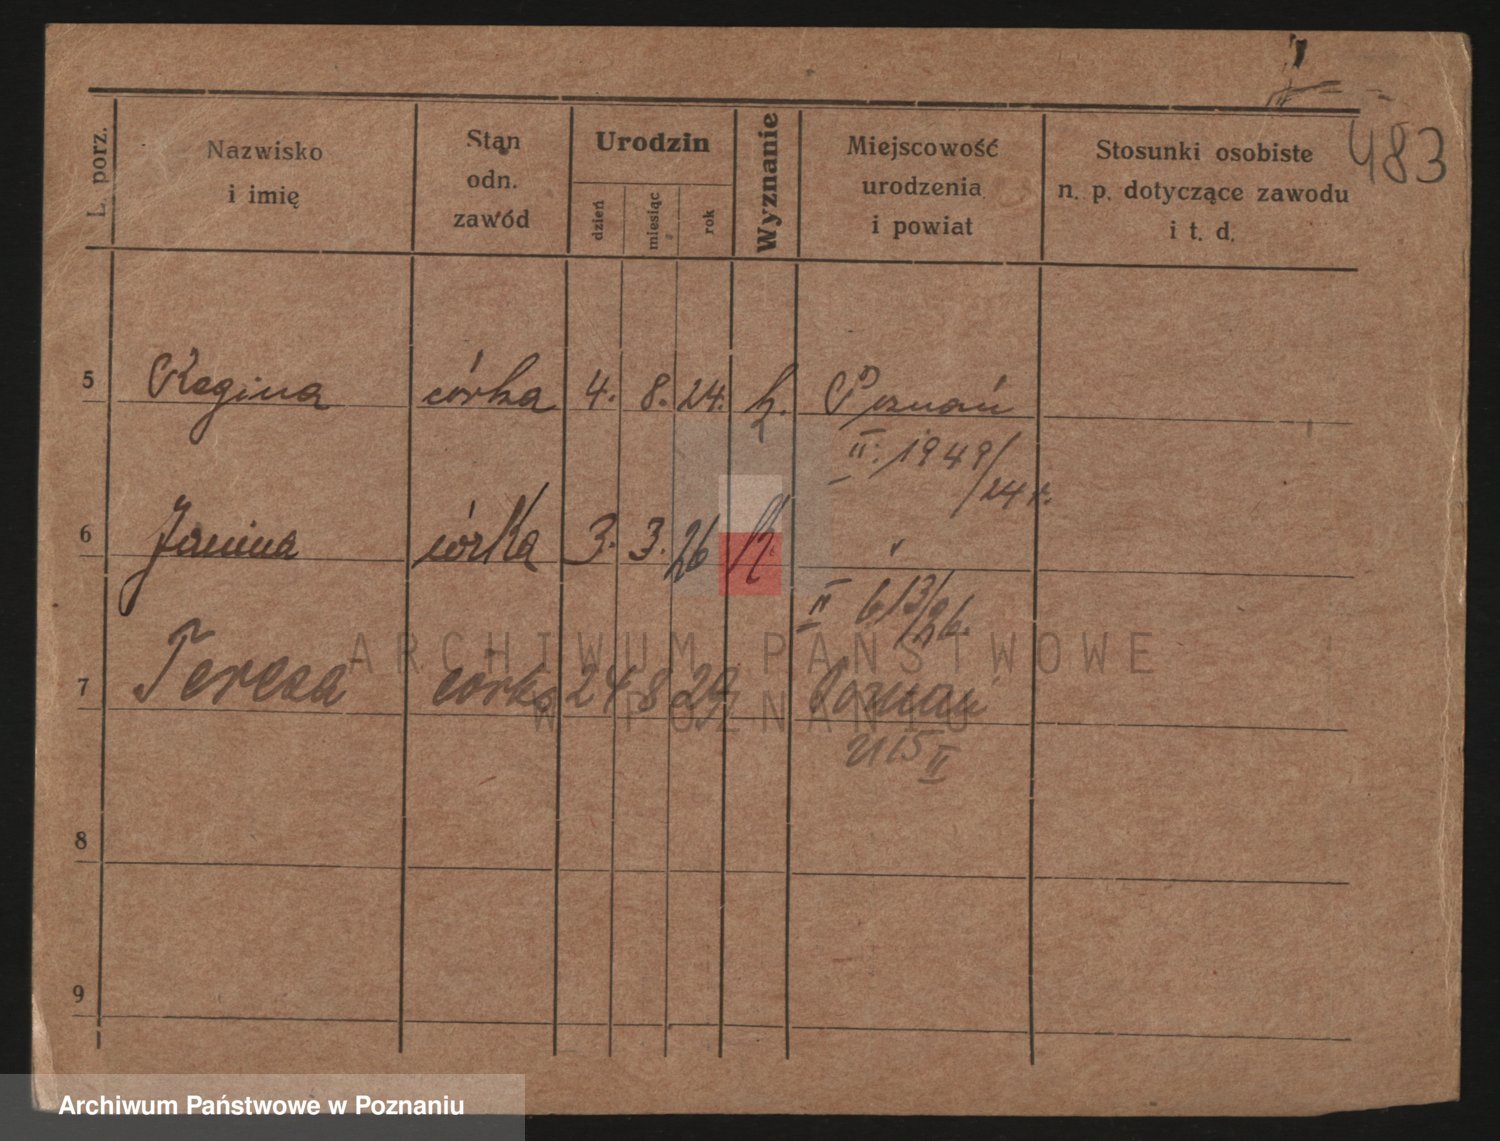 483
L. porz.
Nazwisko i imię
Stan odn. zawód
Urodzin
dzień
miesiąc
rok
Wyznanie
Miejscowość urodzenia i powiat
Stosunki osobiste n. p. dotyczące zawodu i t. d.
5 Regina córka 4. 8. 24. k. Poznań
II. 1949/24 r.
6 Janina córka 3. 3. 26 k. "
II 613/26.
7 Teresa córka 24 8 29 Poznań
2115 II
8
9
ARCHIWUM PAŃSTWOWE
W POZNANIU
Archiwum Państwowe w Poznaniu